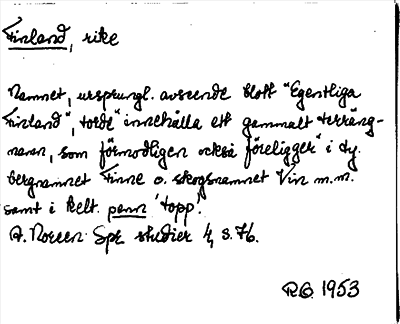 Finland, rike
Namnet, ursprungl. avseende blott "Egentliga
Finland", torde "innehålla ett gammalt terräng-
namn, som förmodligen också föreligger" i ty.
bergnamnet Finne o. skogsnamnet Vin m.m.
samt i kelt. penn 'topp'.
A. Noreen Spr. studier 4, s. 76.
R.O. 1953